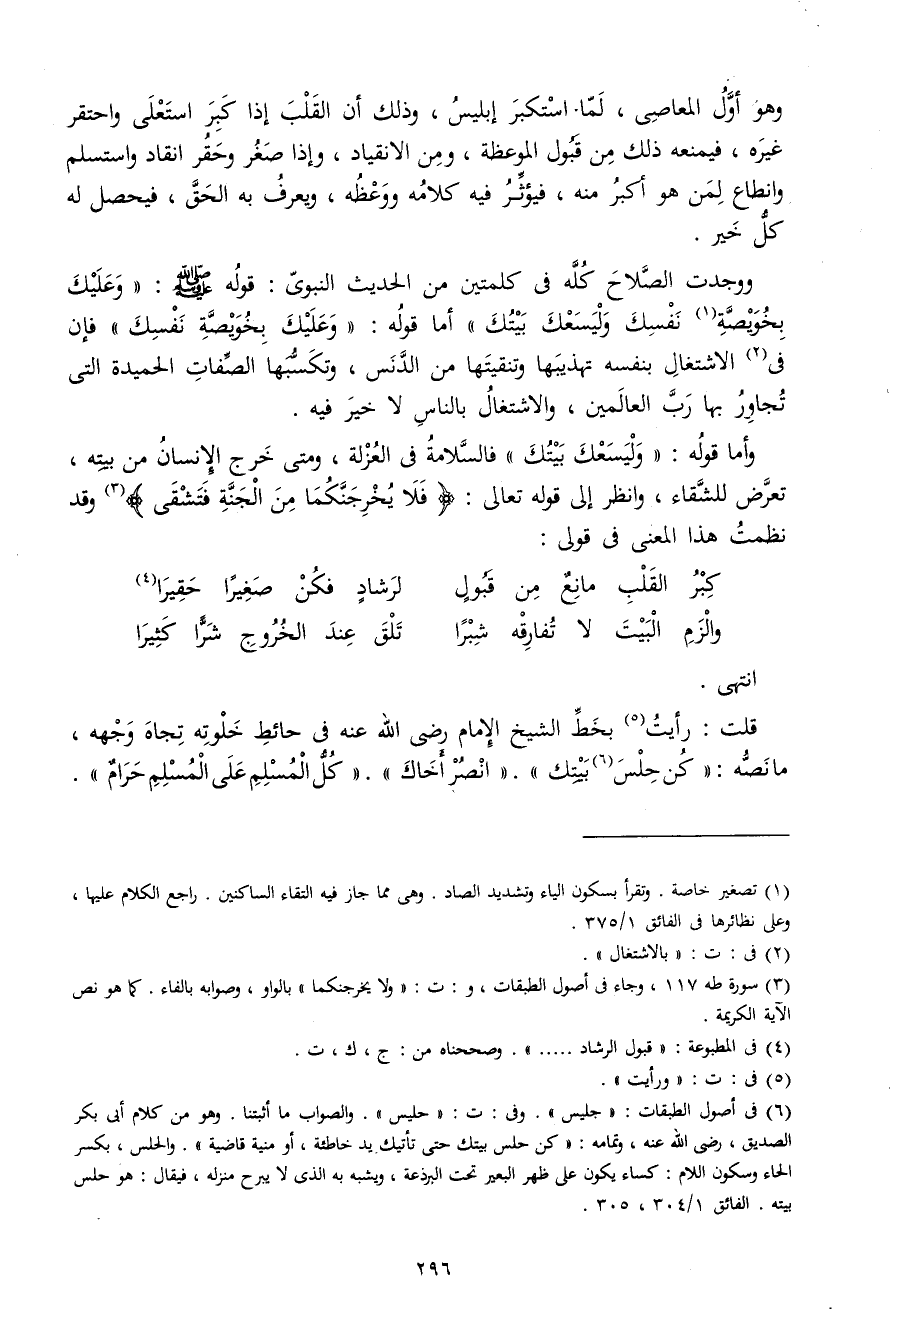 وهو أوَّلُ المعاصى ، لَمّا استكبرَ إبليسُ ، وذلك أن القَلْبَ إذا كَبِرَ استَعْلَى واحتقر
غيرَه ، فيمنعه ذلك مِن قَبُول الموعظة ، ومِن الانقياد ، وإذا صَغُر وحَقُر انقاد واستسلم
وانطاع لِمَن هو أكبرُ منه ، فيؤثِّرُ فيه كلامُه ووَعْظُه ، ويعرفُ به الحَقَّ ، فيحصل له
كلُّ خَير .
ووجدت الصَّلاحَ كُلَّه فى كلمتين من الحديث النبوىّ : قولُه ﷺ : « وَعَلَيْكَ
بِخُوَيْصَّةِ(١) نَفْسِكَ وَلْيَسَعْكَ بَيْتُكَ » أما قولُه : « وَعَلَيْكَ بِخُوَيْصَّةِ نَفْسِكَ » فإن
فى(٢) الاشتغالِ بنفسه تهذيبَها وتنقيتَها من الدَّنَس ، وتكسُّبَها الصِّفاتِ الحميدة التى
تُجاوِرُ بها رَبَّ العالَمين ، والاشتغالُ بالناسِ لا خيرَ فيه .
وأما قولُه : « وَلْيَسَعْكَ بَيْتُكَ » فالسَّلامةُ فى العُزْلة ، ومتى خَرج الإنسانُ من بيتِه ،
تعرَّض للشَّقاء ، وانظر إلى قوله تعالى : ﴿ فَلَا يُخْرِجَنَّكُمَا مِنَ الْجَنَّةِ فَتَشْقَى ﴾(٣) وقد
نظمتُ هذا المعنى فى قولى :
كِبْرُ القَلْبِ مانِعٌ مِن قَبُولٍ لرَشادٍ فكُنْ صَغِيرًا حَقِيرَا(٤)
والْزَمِ الْبَيْتَ لا تُفارِقْه شِبْرًا تَلْقَ عِندَ الخُرُوجِ شَرًّا كَثِيرَا
انتهى .
قلت : رأيتُ(٥) بخَطِّ الشيخ الإمام رضى الله عنه فى حائطِ خَلْوتِه تِجاهَ وَجْهه ،
ما نَصُّه : « كُن حِلْسَ(٦) بَيْتِك » . « انْصُرْ أَخَاكَ » . « كُلُّ الْمُسْلِمِ عَلَى الْمُسْلِمِ حَرَامٌ » .
(١) تصغير خاصة . وتقرأ بسكون الياء وتشديد الصاد . وهى مما جاز فيه التقاء الساكنين . راجع الكلام عليها ،
وعلى نظائرها فى الفائق ٣٧٥/١ .
(٢) فى : ت : « بالاشتغال » .
(٣) سورة طه ١١٧ ، وجاء فى أصول الطبقات ، و : ت : « ولا يخرجنكما » بالواو ، وصوابه بالفاء . كما هو نص
الآية الكريمة .
(٤) فى المطبوعة : « قبول الرشاد ..... » . وصححناه من : ج ، ك ، ت .
(٥) فى : ت : « ورأيت » .
(٦) فى أصول الطبقات : « جليس » . وفى : ت : « حليس » . والصواب ما أثبتنا . وهو من كلام أبى بكر
الصديق ، رضى الله عنه ، وتمامه : « كن حلس بيتك حتى تأتيك يد خاطئة ، أو منية قاضية » . والحلس ، بكسر
الحاء وسكون اللام : كساء يكون على ظهر البعير تحت البرذعة ، ويشبه به الذى لا يبرح منزله ، فيقال : هو حلس
بيته . الفائق ٣٠٤/١ ، ٣٠٥ .
٢٩٦